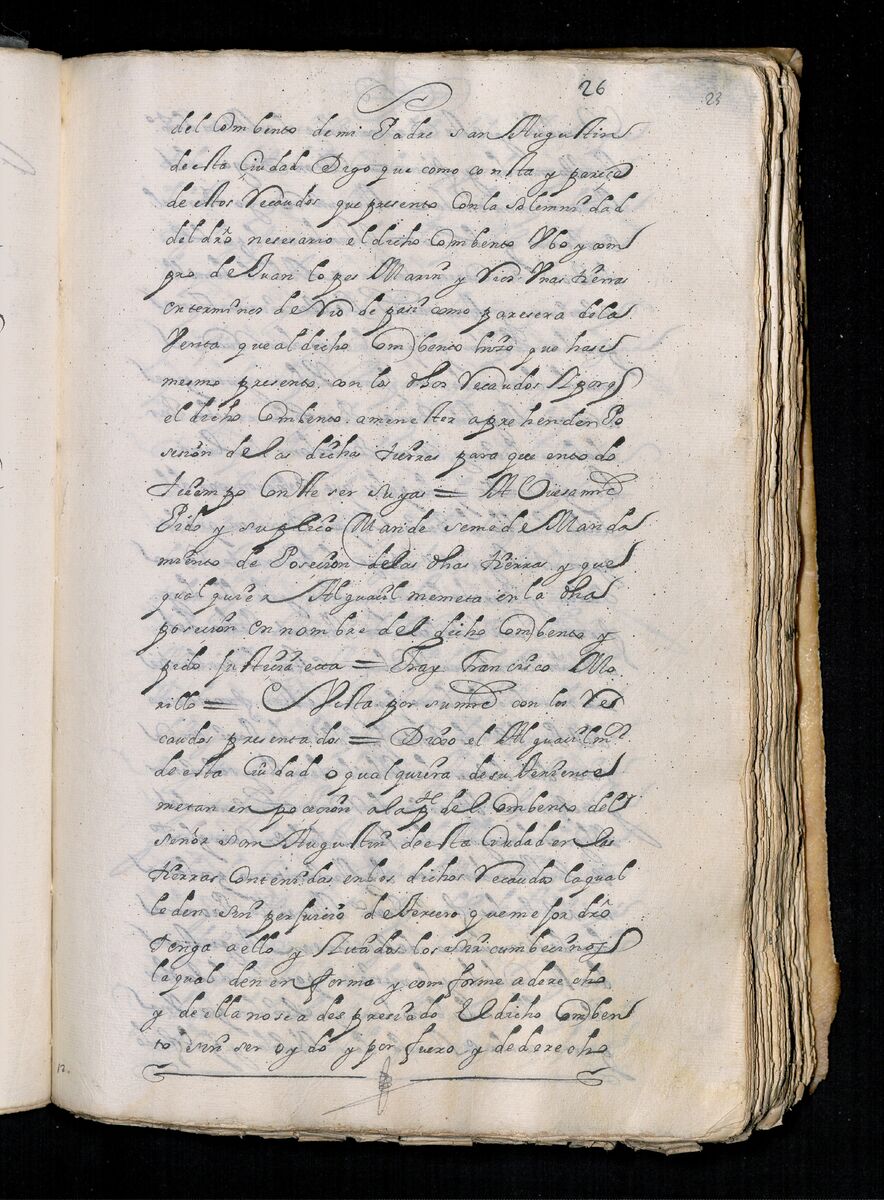 26
23
del Combento de mi Padre san Augustin
de esta Ciudad Digo que como consta y pareçe
de estos Recaudos que presento Con la solemnidad
del dro nesesario el dicho Combento Ubo y com
pro de Juan lopes Marin y Vios Unas tierras
en terminos de Rio de pasi como paresera de la
Venta que al dicho Combento hizo que hasi
mesmo presento con los dhos Recaudos Y porq
el dicho Combento a menester aprehenden Po
sesion de las dichas tierras para que en todo
tiempo Conste ser suyas = A Vuesa mrd
Pido y suplico Mande se me de Manda
miento de Posecion de las dhas tierras y que
qualquier Alguacil me meta en la dha
posecion en nombre del dicho Combento y
pido Justicia ecta = Fray Francisco Mo
rillo = Vista por su mrd con los Re
caudos presentados = Dixo el Alguacil mor
de esta Ciudad o qualquiera de sus tenientes
metan en pocecion a la pte del Combento del
señor san Augustin de esta Ciudad en las
tierras Contenidas en los dichos Recaudos la qual
le den sin perjuicio de tercero que mejor dro
tenga a ello y Sitados los sircumbecinos
la qual den en forma y comforme a derecho
y de ella no sea despresiado El dicho Comben
to sin ser oydo y por fuero y de derecho
12.